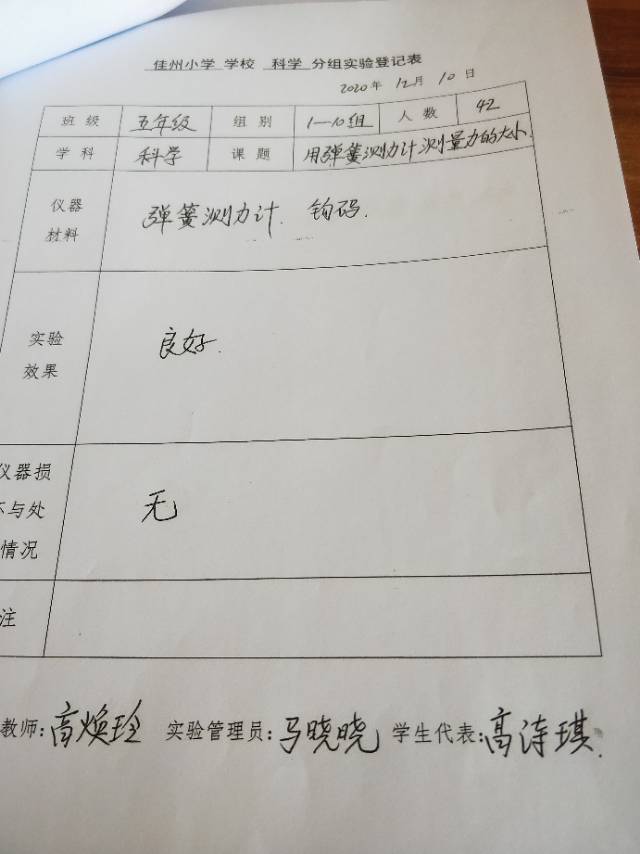 佳州小学 学校 科学 分组实验登记表
2020年 12月 10日
班级 五年级 组别 1—10组 人数 42
学科 科学 课题 用弹簧测力计测量力的大小.
仪器材料 弹簧测力计. 钩码.
实验效果 良好.
仪器损
不与处 无
情况
注
教师: 高焕玲 实验管理员: 马晓晓 学生代表: 高涛琪.